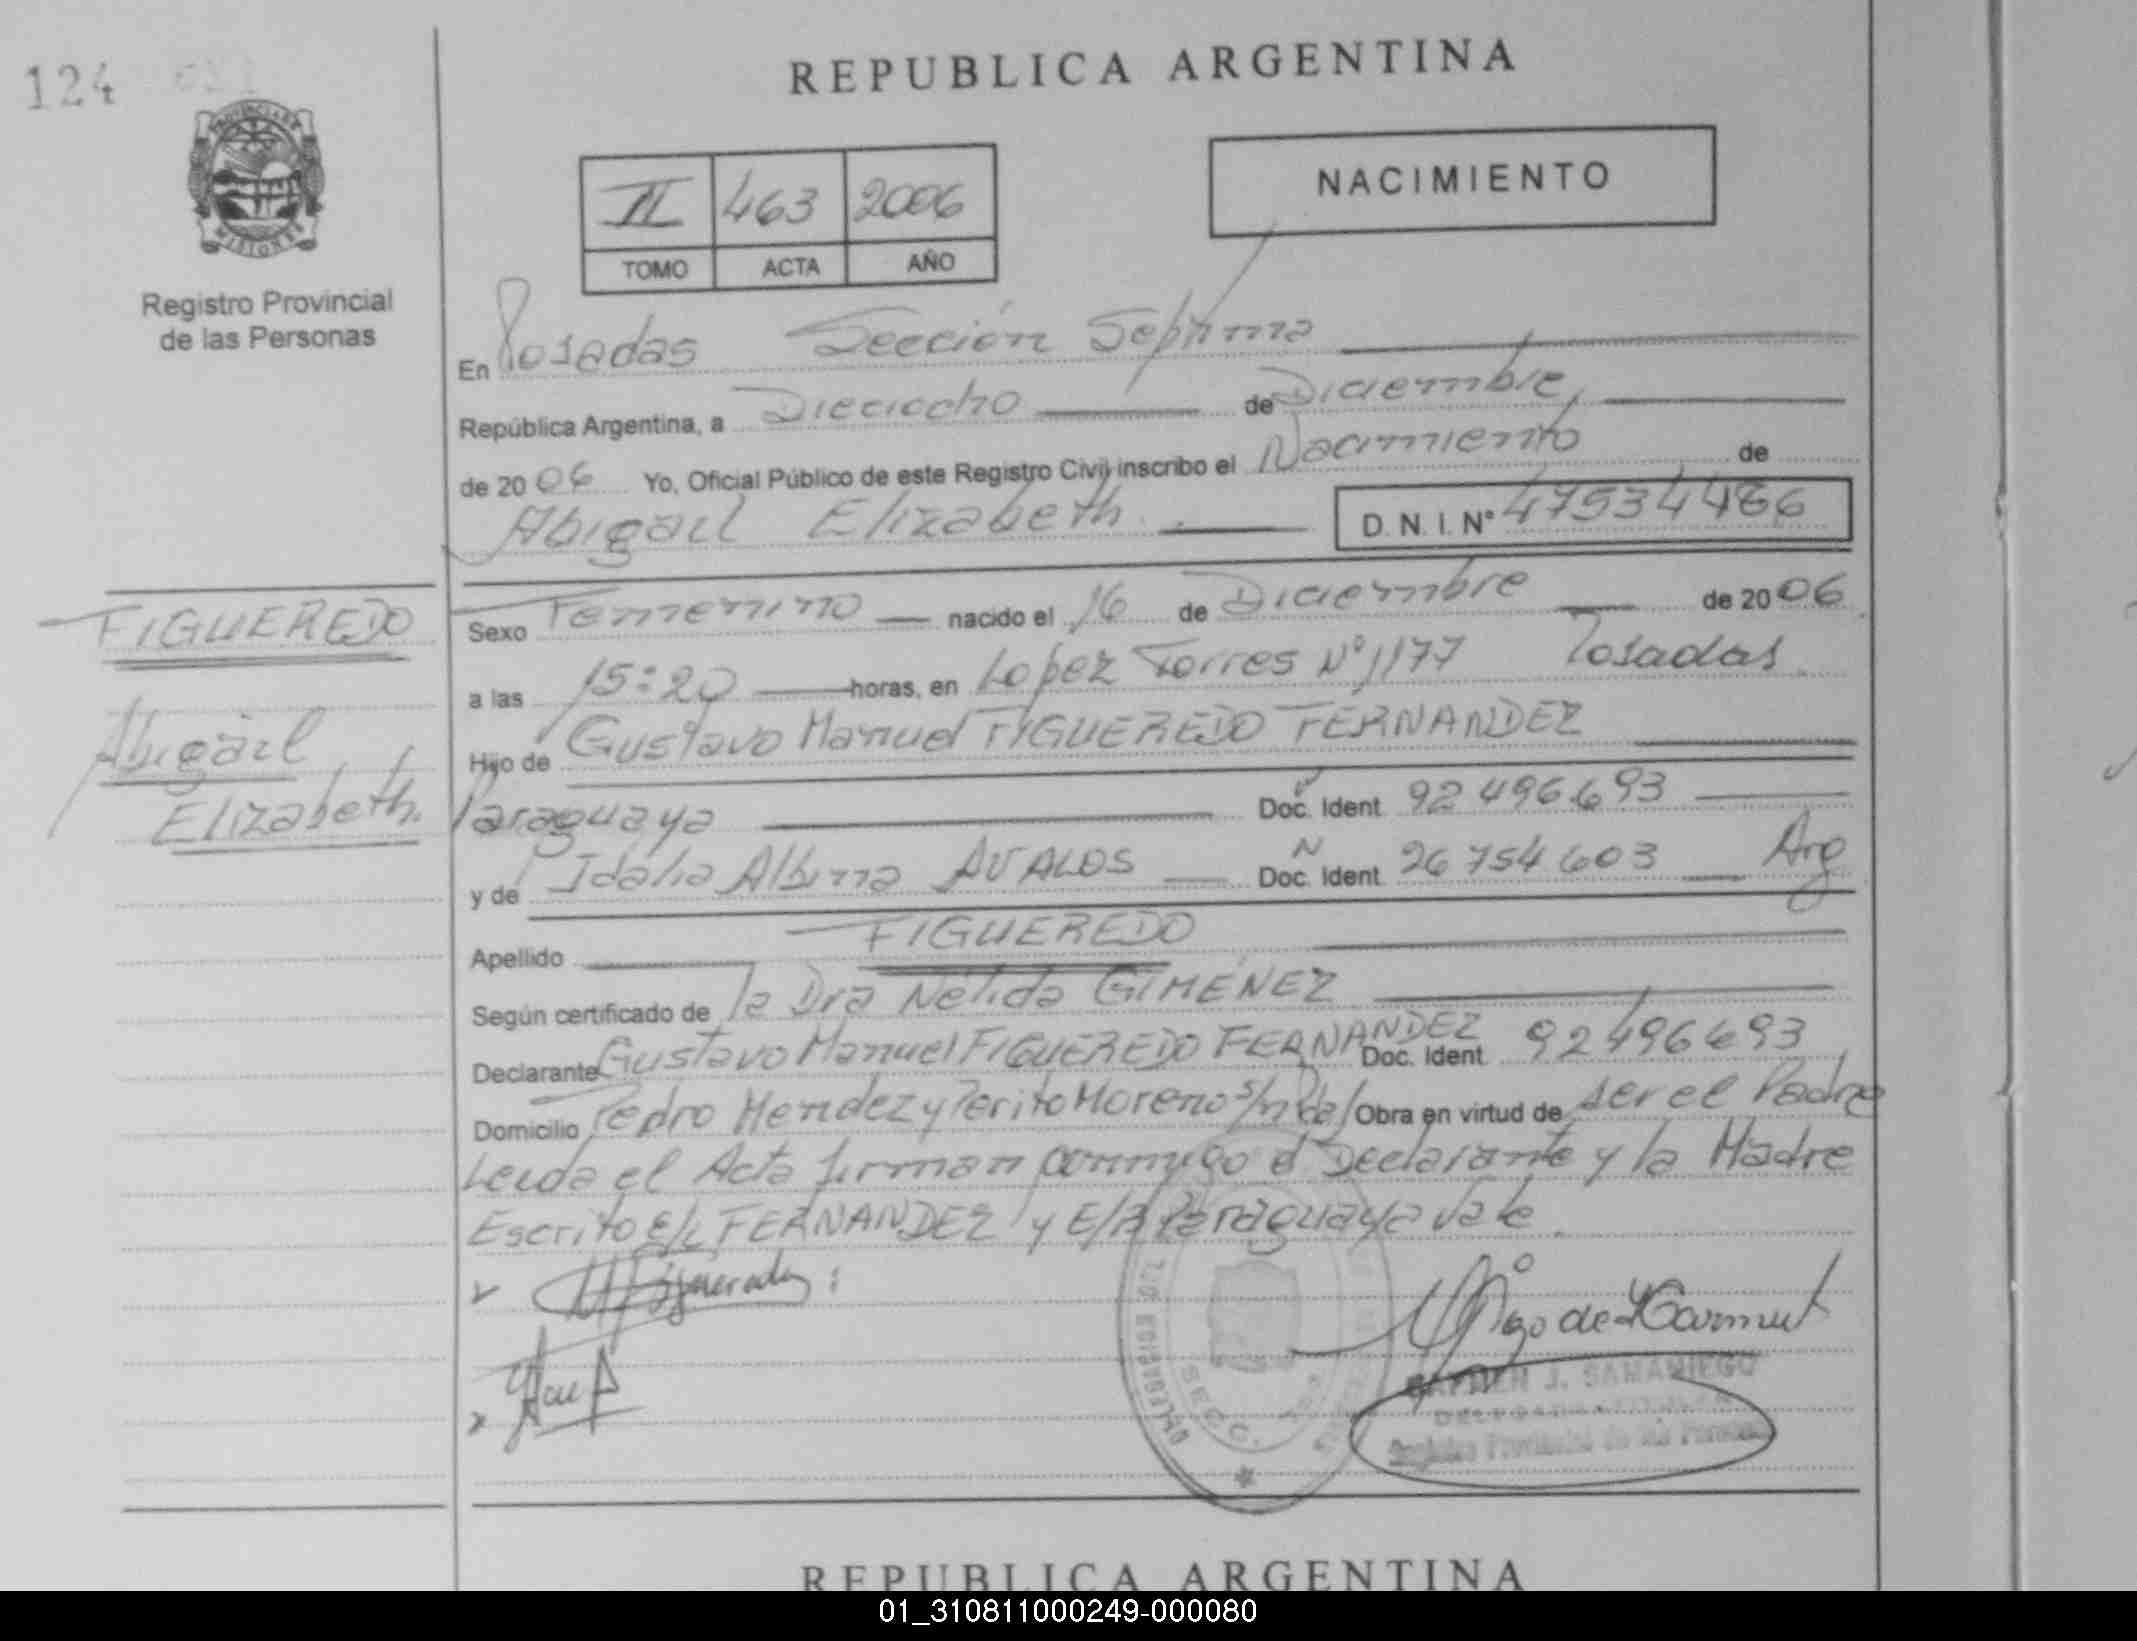 124
REPUBLICA ARGENTINA
PROVINCIA DE
MISIONES
Registro Provincial
de las Personas
II 463 2006
TOMO ACTA AÑO
NACIMIENTO
En Posadas Sección Septima
República Argentina, a Dieciocho de Diciembre,
de 2006 Yo, Oficial Público de este Registro Civil inscribo el Nacimiento de
Abigail Elizabeth D. N. I. Nº 47534486
FIGUEREDO
Abigail
Elizabeth.
Sexo Femenino nacido el 16 de Diciembre de 2006
a las 15:20 horas, en Lopez Torres Nº 1177 Posadas.
Hijo de Gustavo Manuel FIGUEREDO FERNANDEZ
Paraguaya Doc. Ident. 92496693
y de Idalia Albina AVALOS Doc. Ident. N 26754603 Arg
Apellido FIGUEREDO
Según certificado de la Dra Nelida GIMENEZ
Declarante Gustavo Manuel FIGUEREDO FERNANDEZ Doc. Ident. 92496693
Domicilio Pedro Mendez y Perito Moreno s/n Pdas/ Obra en virtud de ser el Padre
Leida el Acta firman conmigo el Declarante y la Madre
Escrito E/L FERNANDEZ y E/R Paraguaya Vale
SECC.
CARMEN J. SAMANIEGO
Registro Provincial de las Personas
REPUBLICA ARGENTINA
01_310811000249-000080